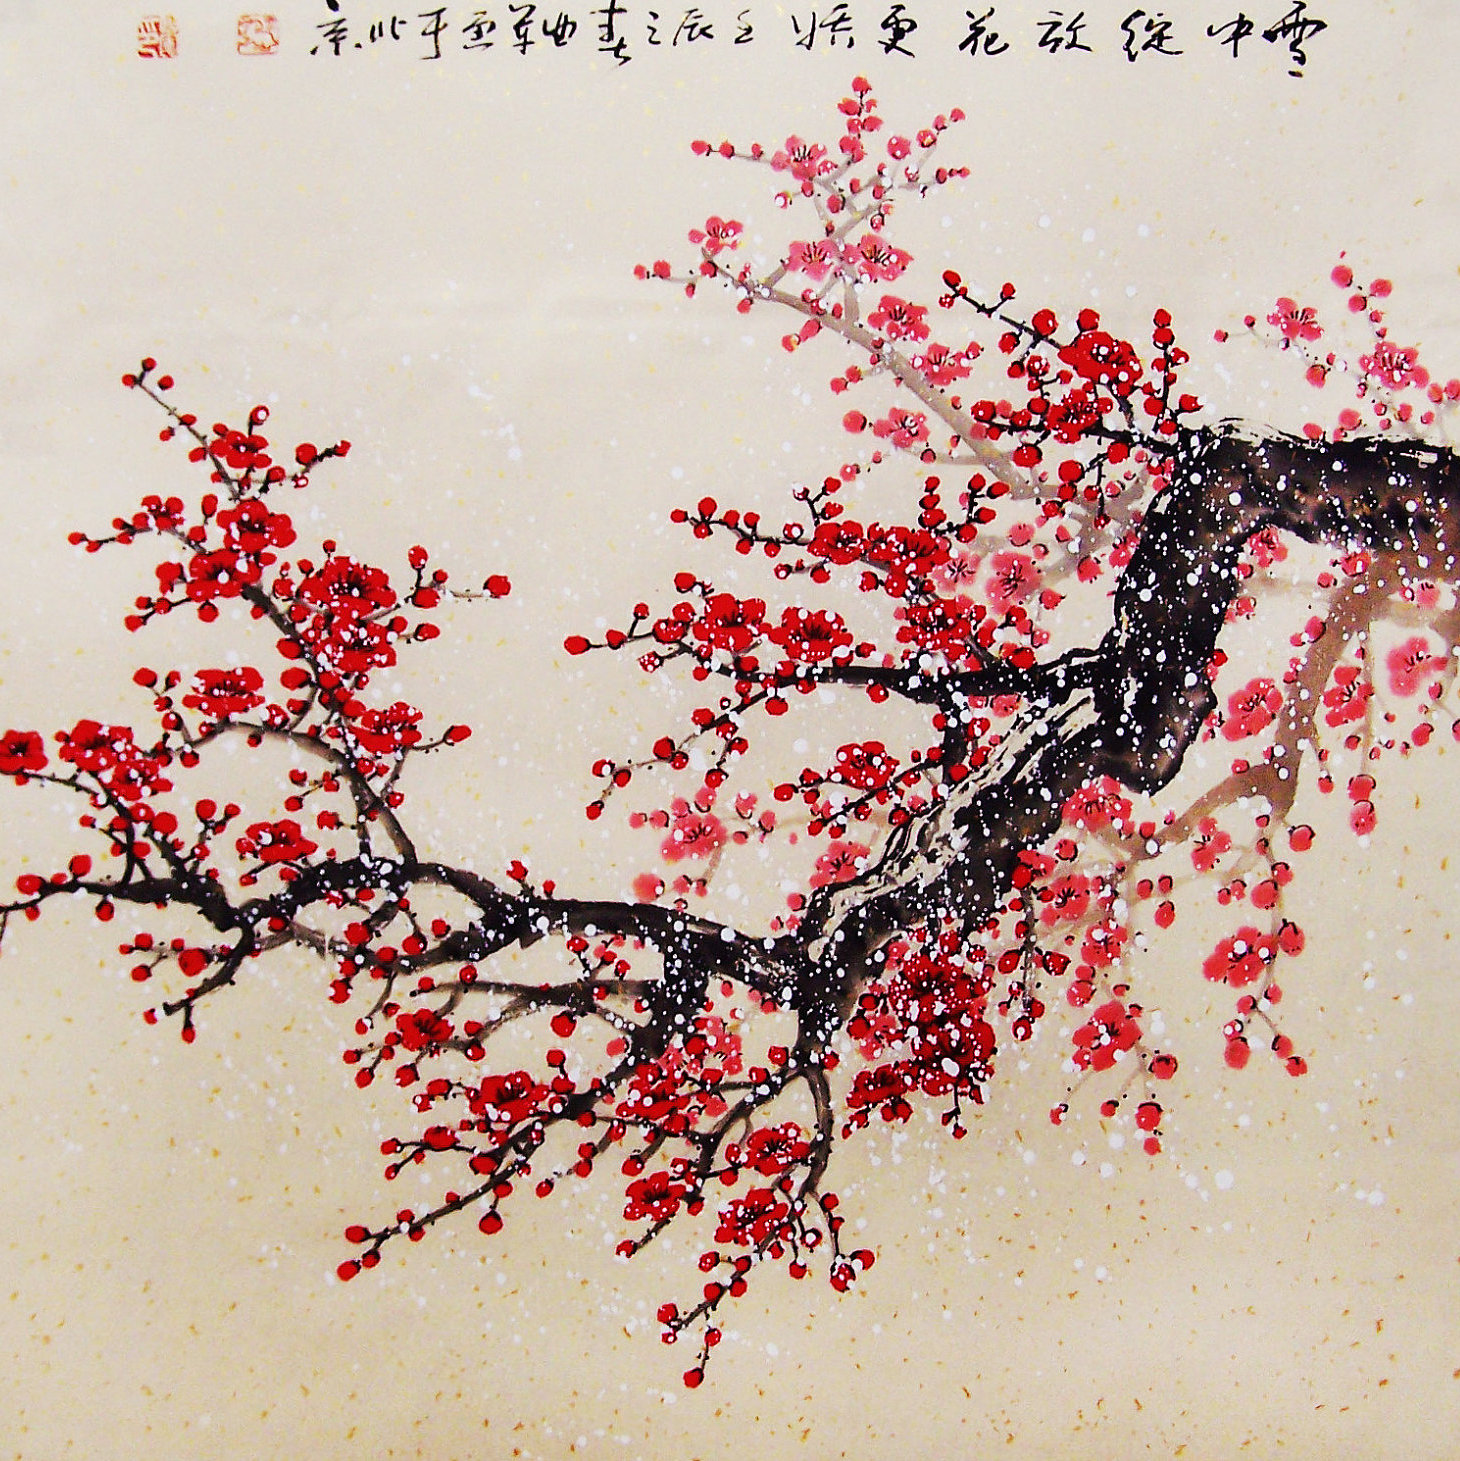 雪中綻放花更嬌壬辰之春曲草画于北京